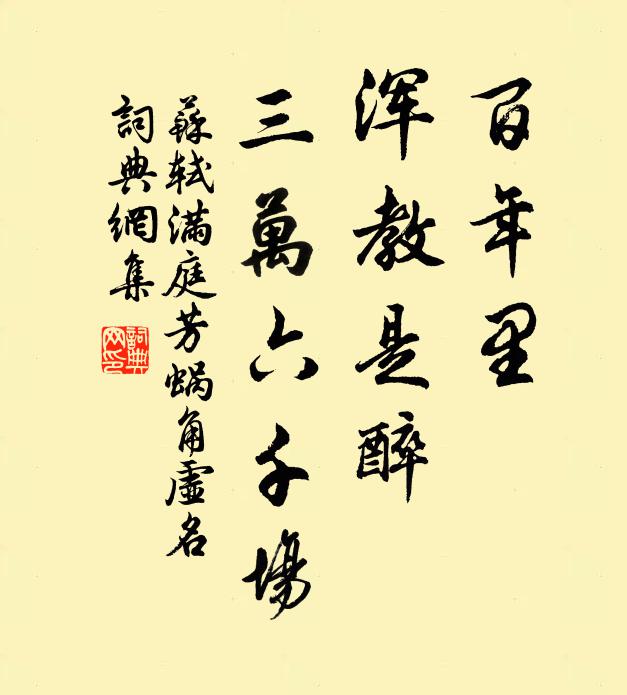 百年里
浑教是醉
三萬六千場
蘇軾满庭芳蝸角虛名
詞典網集
詞典网印